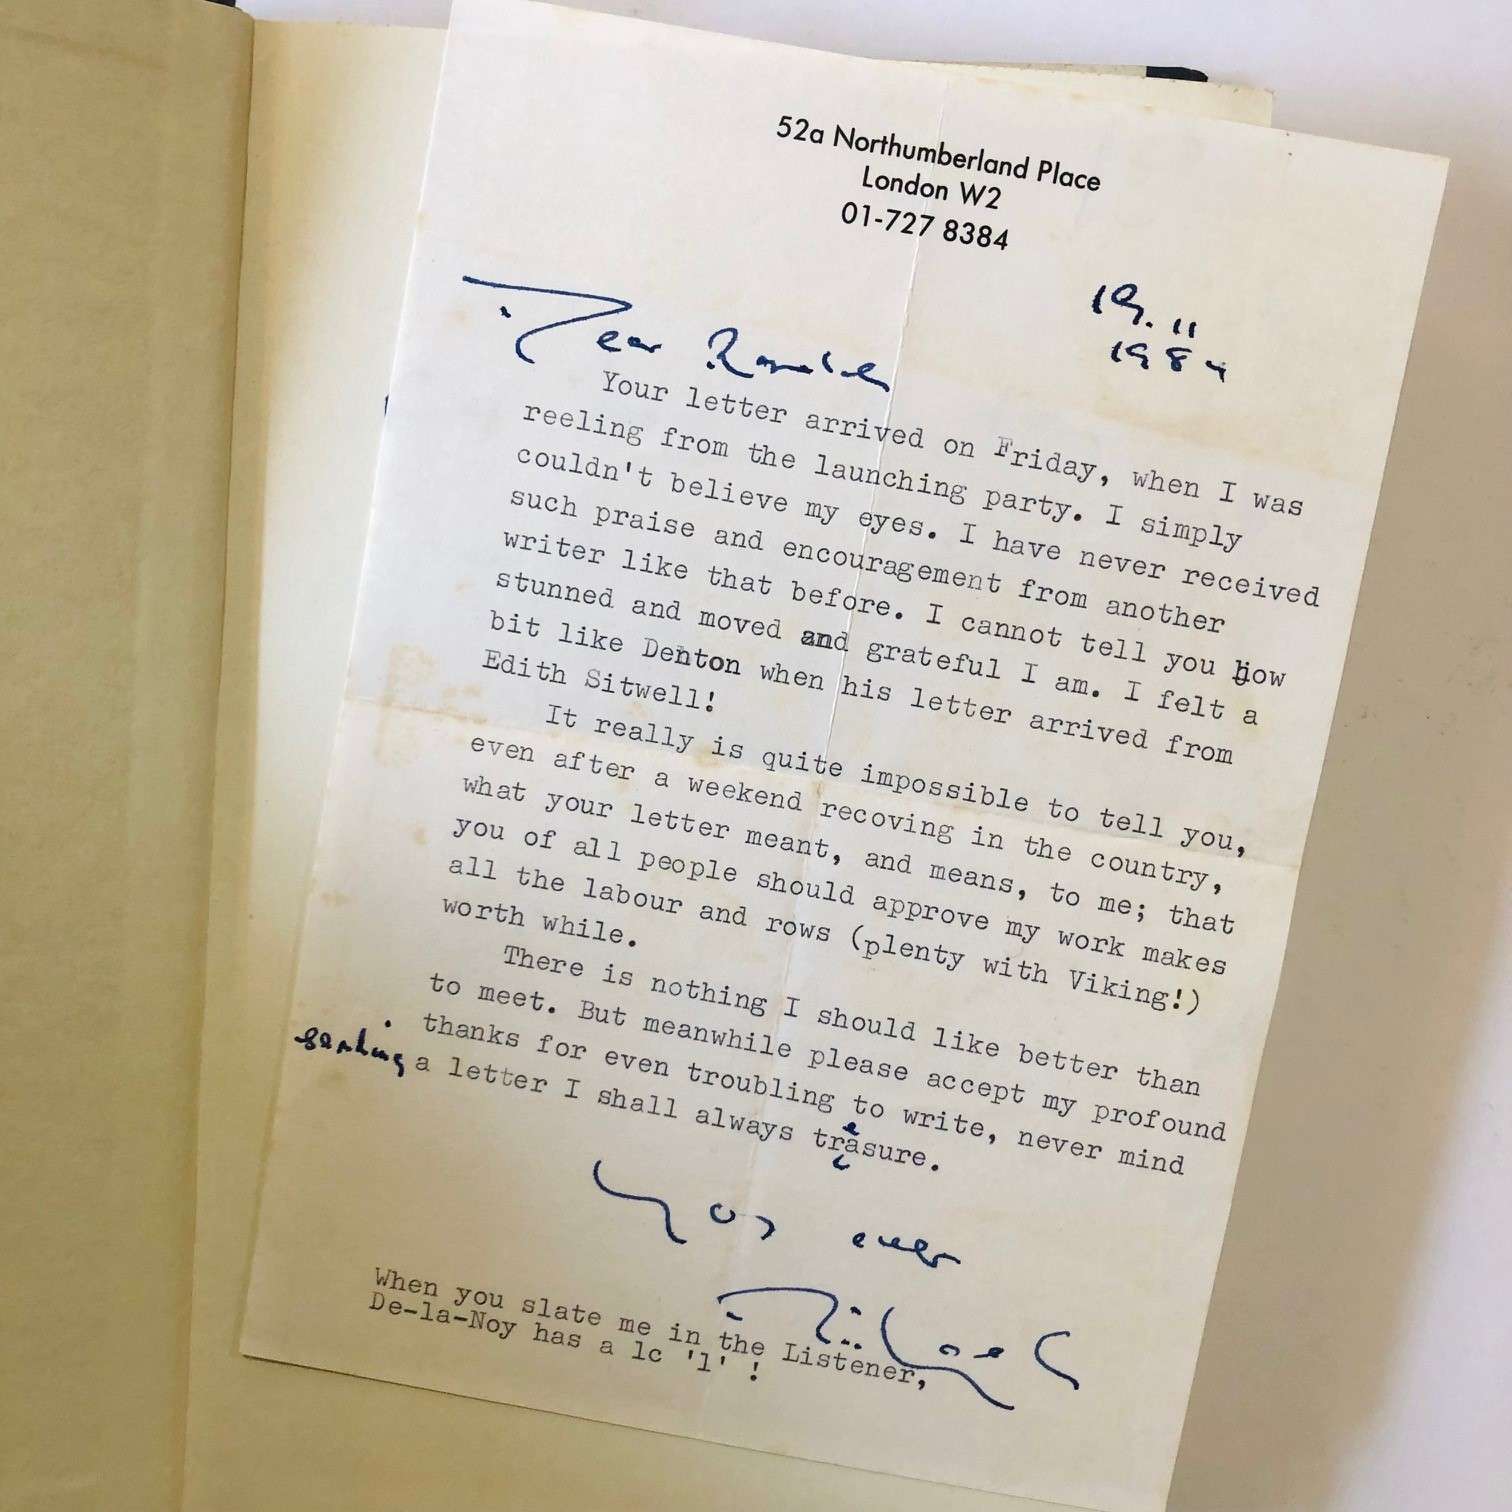 52a Northumberland Place
London W2
01-727 8384
19.11
1984
Dear
Your letter arrived on Friday, when I was
reeling from the launching party. I simply
couldn't believe my eyes. I have never received
such praise and encouragement from another
writer like that before. I cannot tell you how
stunned and moved and grateful I am. I felt a
bit like Denton when his letter arrived from
Edith Sitwell!
It really is quite impossible to tell you,
even after a weekend recoving in the country,
what your letter meant, and means, to me; that
you of all people should approve my work makes
all the labour and rows (plenty with Viking!)
worth while.
There is nothing I should like better than
to meet. But meanwhile please accept my profound
thanks for even troubling to write, never mind
sending a letter I shall always treasure.
Yours ever
Michael
When you slate me in the Listener,
De-la-Noy has a lc 'l' !